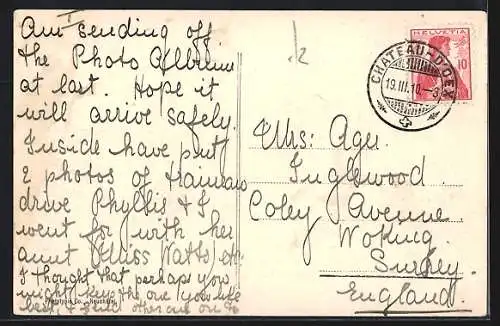 Am sending off
the Photo Album
at last. Hope it
will arrive safely.
Inside have put
2 photos of
drive Phyllis & I
went for with her
aunt Miss Watts, etc.
I thought that perhaps you
might keep the one you like
best, & send other one on to
Mrs: Ager
Inglewood
Coley Avenue
Woking
Surrey.
England.
HELVETIA
10
CHATEAU-D'OEX
19.III.10.–3